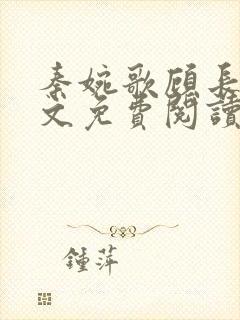 秦婉歌顾長
文免費閱讀
鍾萍